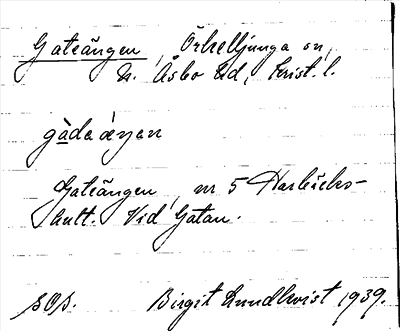 Gateängen, Örkelljunga sn,
N. Åsbo hd, Krist. l.
gàdaáŋan
Gateängen, nr 5 Harbäcks-
hult. Vid Gatan.
Birgit Lundkvist 1939.